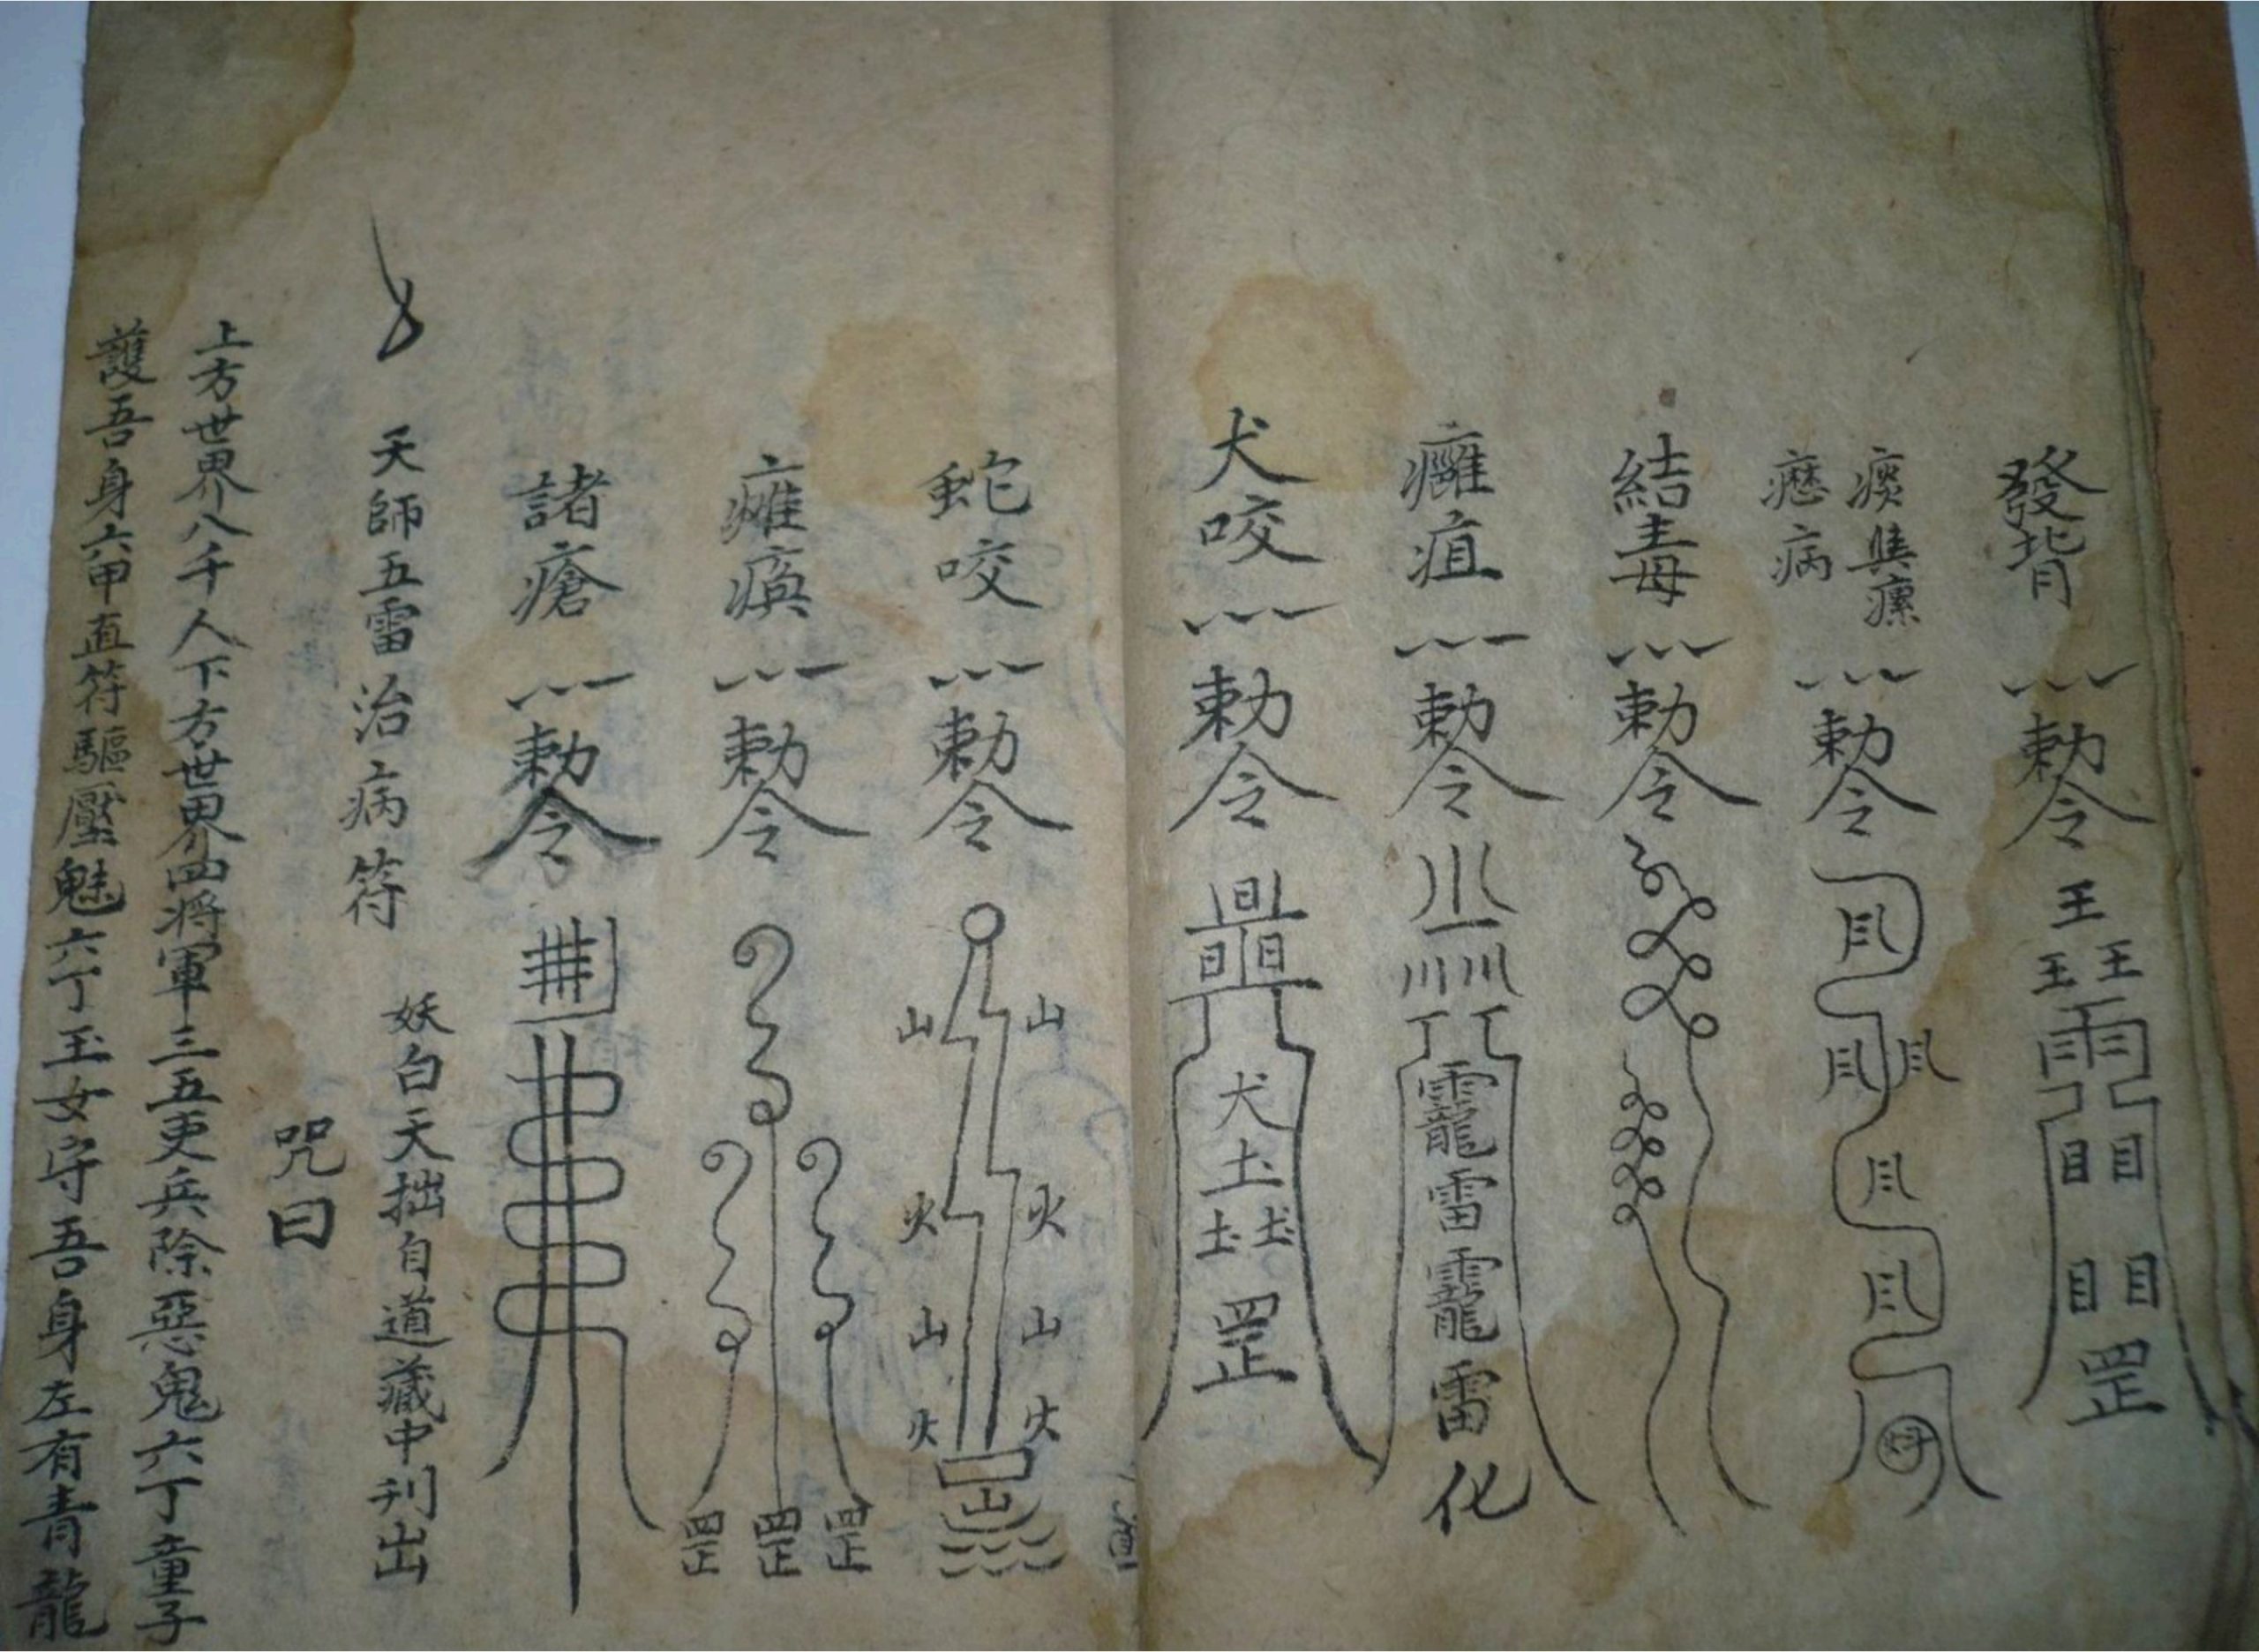 發背
勅令
王
王王
雨
目目
目目
罡
痰
瘰
病
勅令
結毒
勅令
癰疽
勅令
靇
雷
靇
雷
化
犬咬
勅令
犬
土
土土
罡
蛇咬
勅令
山山
火火
山山
火火
山
癱瘓
勅令
罡罡罡
諸瘡
勅令
天師五雷治病符
妖白天拙自道藏中刊出
咒曰
上方世界八千人下方世界四將軍三五吏兵除惡鬼六丁童子
護吾身六甲直符驅壓魅六丁玉女守吾身左有青龍